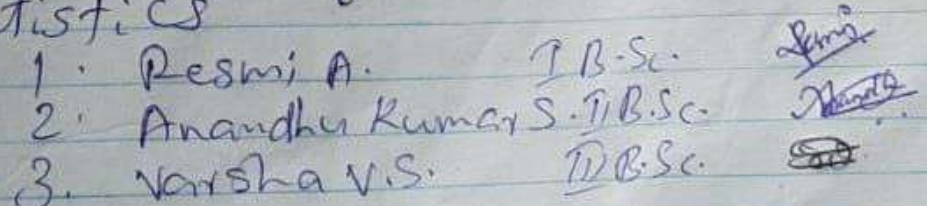 tistics
1. Resmi A. I B.Sc.
2. Anandhu Kumar S. II B.Sc.
3. Varsha V.S. III B.Sc.